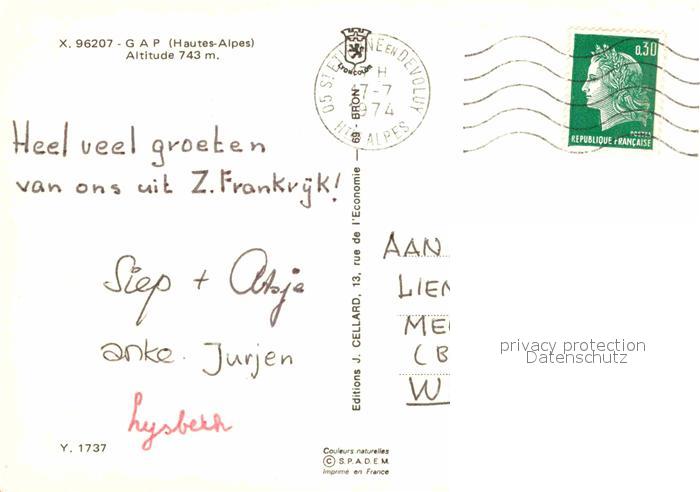 X. 96207 - GAP (Hautes-Alpes)
Altitude 743 m.
Heel veel groeten
van ons uit Z. Frankrijk!
Siep + Atsje
anke. Jurjen
Lysbeth
Y. 1737
05 ST ETIENNE EN DEVOLUY
H
17-7
1974
HTES ALPES
CELLCOLOR
Editions J. CELLARD, 13, rue de l'Economie — 69 BRON
Couleurs naturelles
© S.P.A.D.E.M.
Imprimé en France
0,30
POSTES
REPUBLIQUE FRANÇAISE
AAN
LIEN
ME
(B
W
privacy protection
Datenschutz